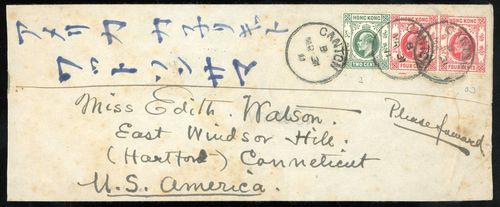 アメリカ カ子リキット
ワットソンサマ
HONG KONG
TWO CENTS
HONG KONG
FOUR CENTS
HONG KONG
FOUR CENTS
CANTON
B
MR
11
Miss Edith Watson.
East Windsor Hill.
(Hartford) Connecticut
U.S. America.
Please forward